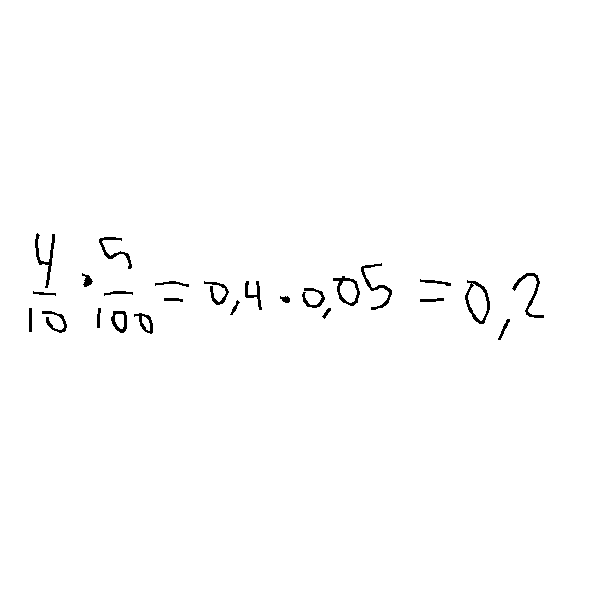 4/10 · 5/100 = 0,4 · 0,05 = 0,2